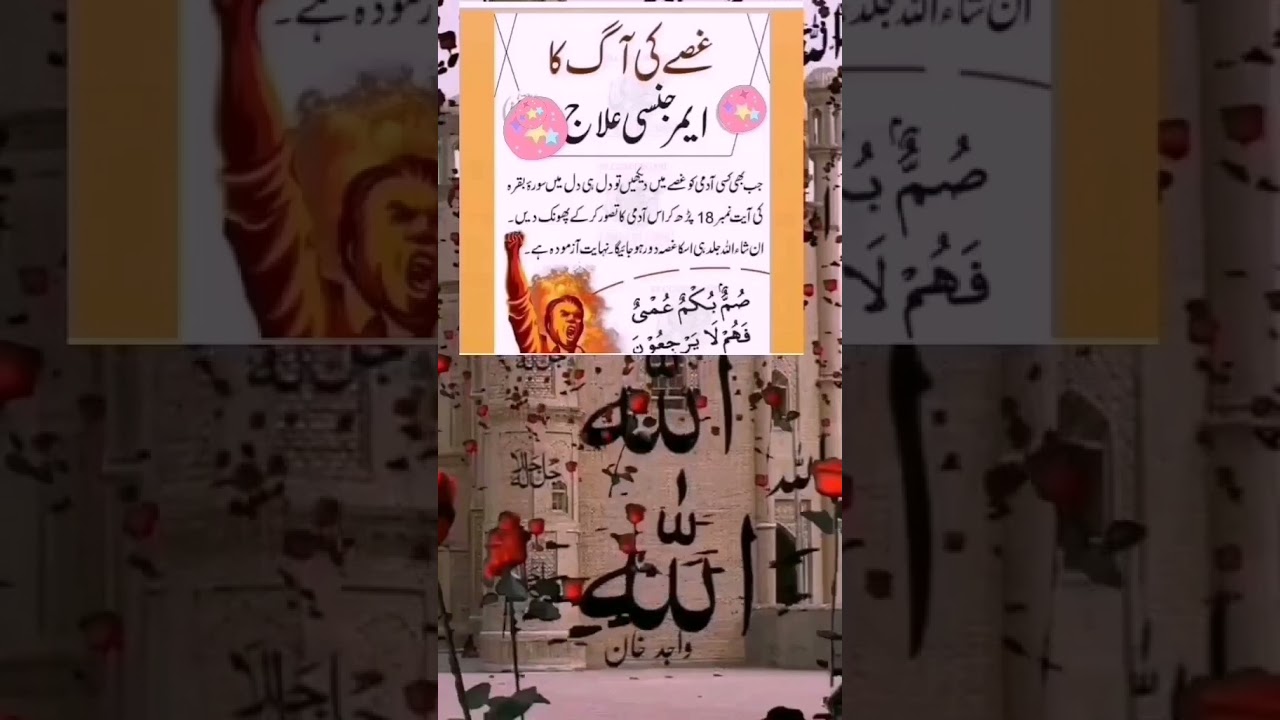 غصے کی آگ کا
ایمرجنسی علاج
جب بھی کسی آدمی کو غصے میں دیکھیں تو دل ہی دل میں سورۂ بقرہ
کی آیت نمبر 18 پڑھ کر اس آدمی کا تصور کر کے پھونک دیں۔
ان شاء اللہ جلد ہی اسکا غصہ دور ہو جائیگا۔ نہایت آزمودہ ہے۔
صُمٌّۢ بُكْمٌ عُمْیٌ
فَهُمْ لَا یَرْجِعُوْنَ
الله
جل جلالہ
الله
الله
واجد خان
ان شاء اللہ جلد
آزمودہ ہے۔
صُمٌّۢ بُ
فَهُمْ لَا
جل جلالہ